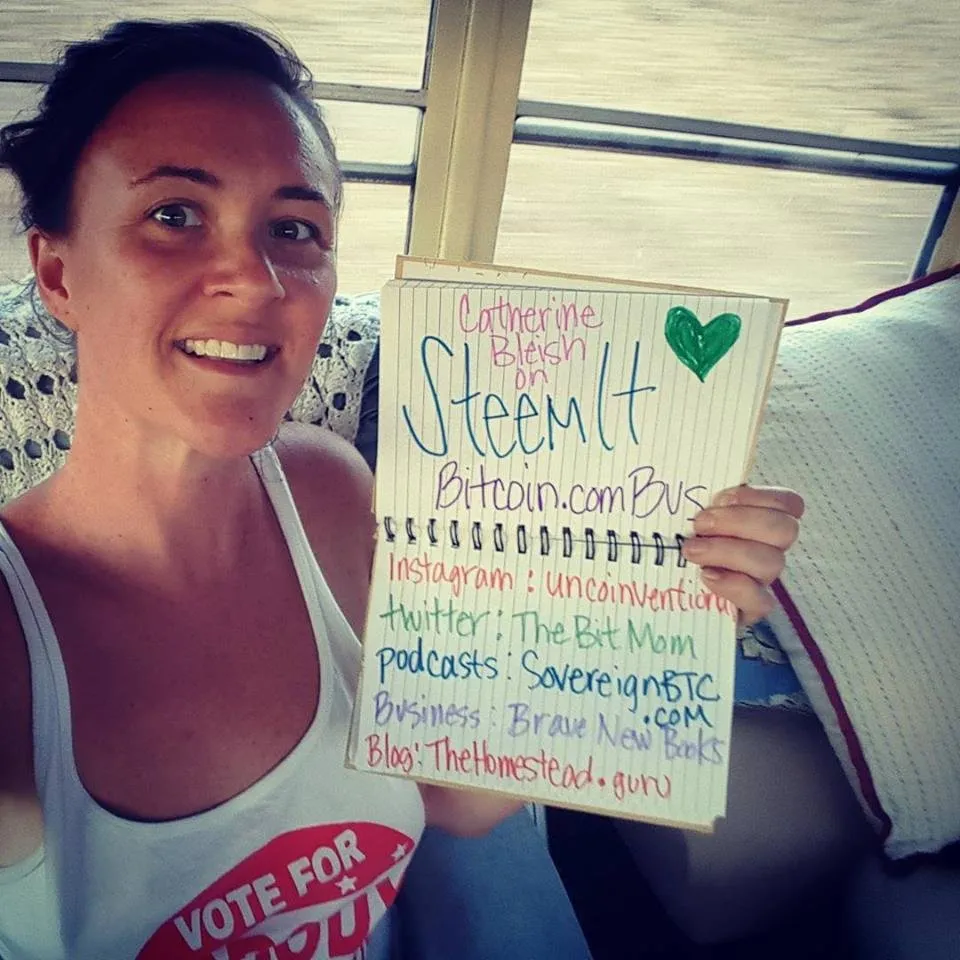 Catherine
Bleish
on
SteemIt
Bitcoin.comBus
Instagram: uncoinventional
twitter: The Bit Mom
podcasts: SovereignBTC
.com
Business: Brave New Books
Blog: TheHomestead.guru
VOTE FOR